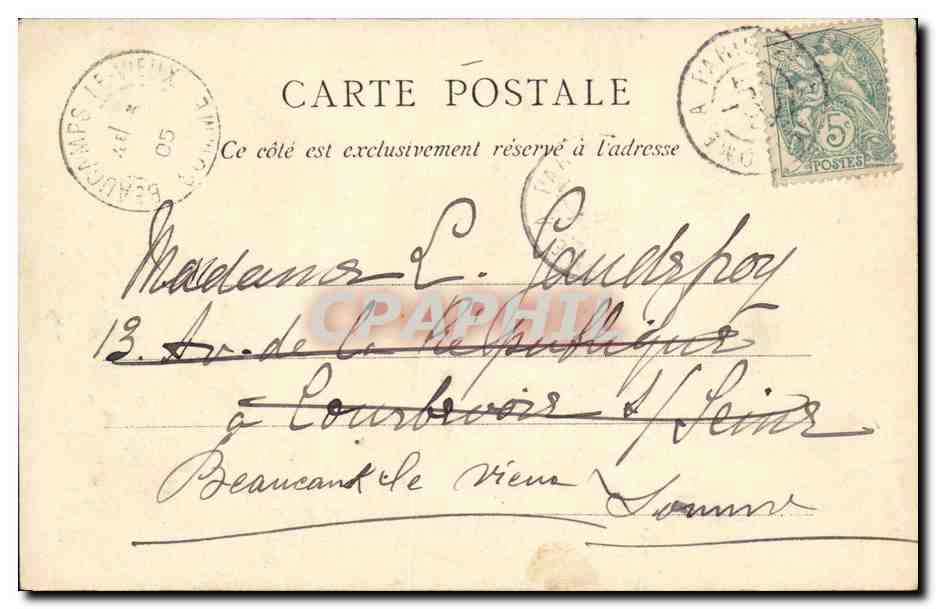 CARTE POSTALE
Ce côté est exclusivement réservé à l'adresse
BEAUCAMPS-LE-VIEUX
05
A PARIS
5c
POSTES
Madame L. Gaudefroy
13. Av. de la République
à Courbevoie s/ Seine
Beaucamk le vieux Somme
CPAPHIL